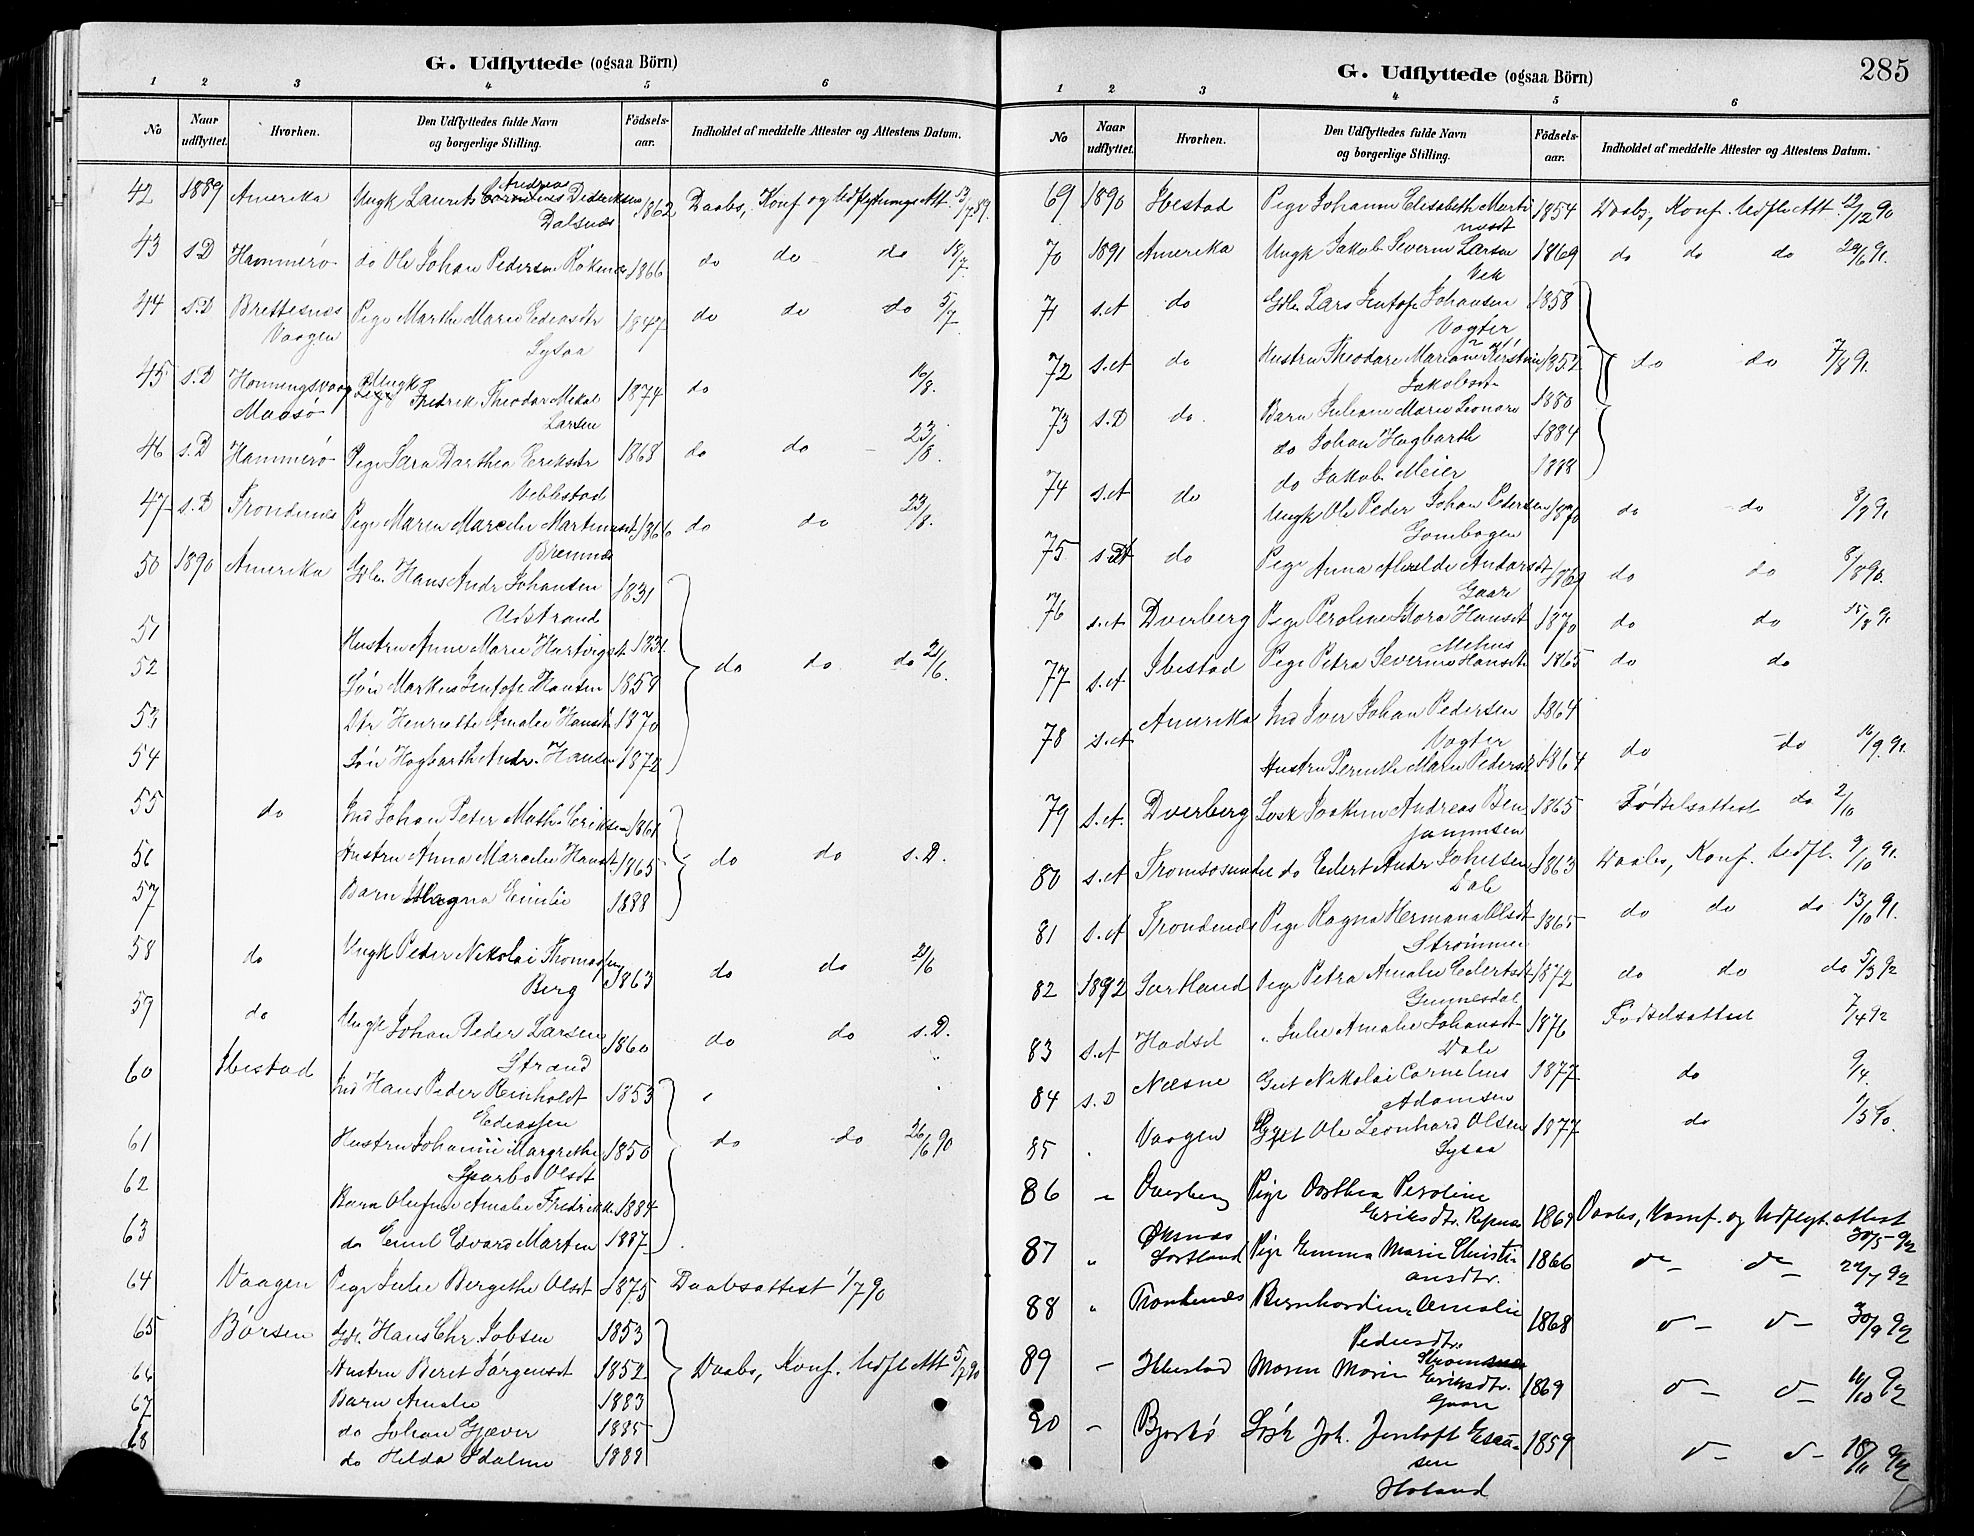 G. Udflyttede (ogsaa Börn)
1 2 3 4 5 6
No Naar udflyttet. Hvorhen. Den Udflyttedes fulde Navn og borgerlige Stilling. Födselsaar. Indholdet af meddelte Attester og Attestens Datum.
42 1889 Amerika Ungk Laurits Andreas Dideriksen 1862 Daabs, Konf og Udflytnings Att. 13/7 89.
Dalsnæs
43 s.D Hammerø do Ole Johan Pedersen 1866 do do do 18/7.
44 s.D Brettesnæs Pige Marthe Marie Ediasdtr 1847 do do do 5/7
Vaagen Lysaa
45 s.D Honningsvaag Ungk Fredrik Theodor Mekal 1874 do 16/8.
Maasø Larsen
46 s.D Hammerø Pige Sara Dorthea Eriksdtr 1868 do do 23/8.
47 s.D Trondenes Pige Maren Marcelie Martinusdt 1866 do do 23/8.
Bremnæs
50 1890 Amerika Gbr. Hans Andr Johansen 1831
Udstrand
51 Hustru Anne Marie Hartvigsdt 1832 do do do 21/6.
52 Søn Markus Jentoft Hansen 1859
53 Dtr Henriette Amalie Hansdt 1870
54 Søn Hagbarth Andr. Hansen 1872
55 do Ind Johan Peter Math. Eriksen 1861
56 Hustru Anna Marcelie Hansdt 1865 do do s.D.
57 Barn Magna Emilie 1888
58 do Ungk Peder Nikolai Thomassen 1863 do do 21/6
Berg
59 do Ungk Johan Peder Larsen 1860 do do s.D.
Strand
60 Ibestad Ind Hans Peder Reinholdt 1853
Ediassen
61 Hustru Johanne Margrethe 1850 do do 26/6 90
Sparbo Olsdt
62 Barn Olufine Amalie Fredrikke 1884
63 do Emil Edvard Martin 1887
64 Vaagen Pige Julie Bergithe Olsdt 1875 Daabsattest 1/7 90
65 Börsen Gbr. Hans Chr Jobsen 1853
66 Hustru Beret Jørgensdt 1852 Daabs, Konf. Udfl Att 5/7 90
67 Barn Amalie 1883
68 do Johan Gjæver 1885
do Hilda Idaline 1888
G. Udflyttede (ogsaa Börn) 285
1 2 3 4 5 6
No Naar udflyttet. Hvorhen. Den Udflyttedes fulde Navn og borgerlige Stilling. Födselsaar. Indholdet af meddelte Attester og Attestens Datum.
69 1890 Ibestad Pige Johanne Elisabeth Marti 1854 Daabs, Konf. Udfl Att. 12/12 90
nusdt
70 1891 Amerika Ungk Jakob Severin Larsen 1869 do do do 29/6 91.
Vik
71 s.A do Gbr. Lars Jentoft Johansen 1858
Vogter
72 s.A do Hustru Theodore Mariane Kirstine 1852 do do 7/8 91.
Jakobsdt
73 s.D do Barn Juliane Marie Leonore 1880
do Johan Hagbarth 1884
74 s.A do do Jakob Meier 1888
Ungk Ole Peder Johan Pedersen 1870 do do 8/8 91
75 s.A do Pige Anna Alvilde Andorsdt 1869 do do 8/8 90.
Gaare
76 s.A Dverberg Pige Peroline Hansdt 1870 do do 15/8 91
Mehus
77 s.A Ibestad Pige Petra Severine Hansdtr 1865 do do
78 s.A Amerika Ind Iver Johan Pedersen 1864
Vogter do do 16/9 91.
Hustru Pernille Marie Pedersdt 1864
79 s.A. Dverberg Løsk Joakim Andreas Ben 1865 Fødselsattest do 2/10
jaminsen
80 s.A Tromsøsundet do Edert Andr Johnsen 1863 Daabs, Konf. Udfl. 9/10 91.
Dale
81 s.A Trondenæs Pige Ragna Hermana Olsdt 1865 do do do 13/10 91.
Strømmen
82 1892 Sortland Pige Petra Amalie Edertsdt 1872 do do do 5/3 92
Gunnesdal
83 s.A Hadsel " Julie Amalie Johansdt 1876 Fødselsattest 7/4 92
Dale
84 s.D Næsne Gut Nikolai Cornelius 1877 do 9/4.
Adamsen
85 . Vaagen Ole Leonhard Olsen 1877 do 1/5 90.
Lysaa
86 " Dverberg Pige Dorthea Peroline
Eriksdtr. 1869 Daabs, Konf. og Udflyt. attest
30/5-92
87 " Øksnæs
Sortland Pige Emma Marie Christi 1866 do do 22/7 92
ansdtr.
88 " Trondenæs Bernhardine Amalie 1868 do do 30/9 92
Pedersdtr.
89 - Ibbestad Maren Marie Eriksdtr. 1869 do do 10/10 92
Gaare
90 - Bjarkø Løsk Joh. Jentoft Esau- 1859 do do 18/11 92
sen
Haland